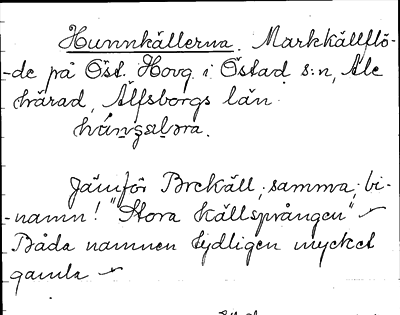 Hunnkällerna. Markkällflö-
-de på Öst. Hovg. i Östad s:n, Ale
härad, Älfsborgs län.
Jämför Brekäll, samma, bi-
-namn! "Stora Källsprången"
Båda namnen tydligen mycket
gamla